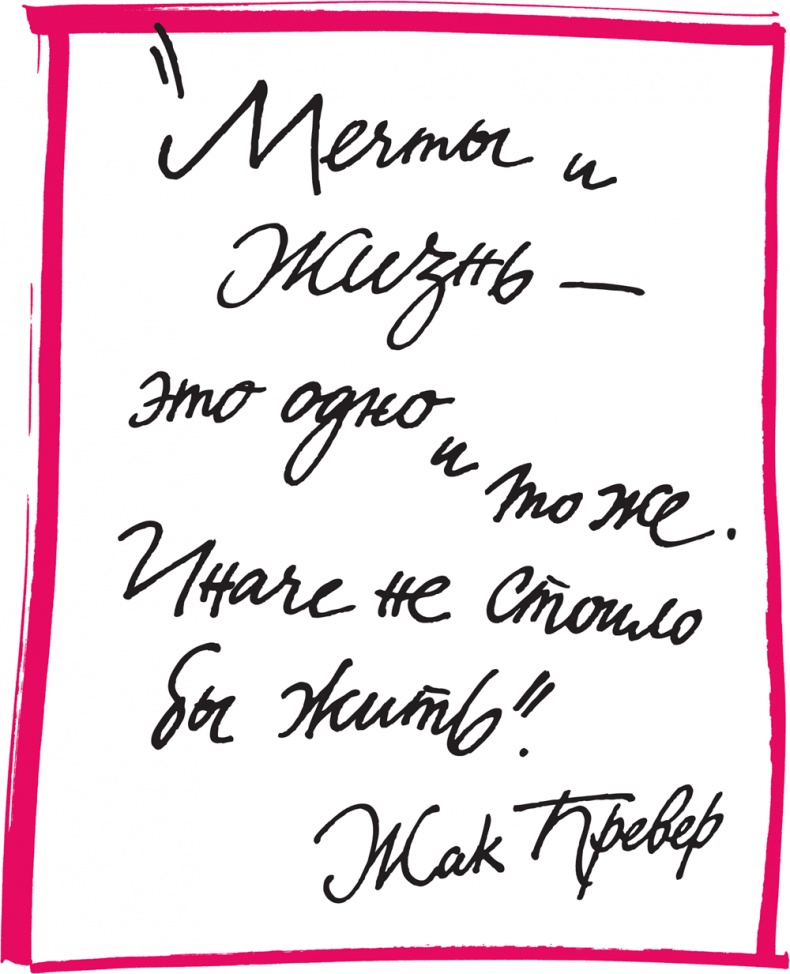 "Мечты и
Жизнь —
это одно
и то же.
Иначе не стоило
бы жить".
Жак Превер